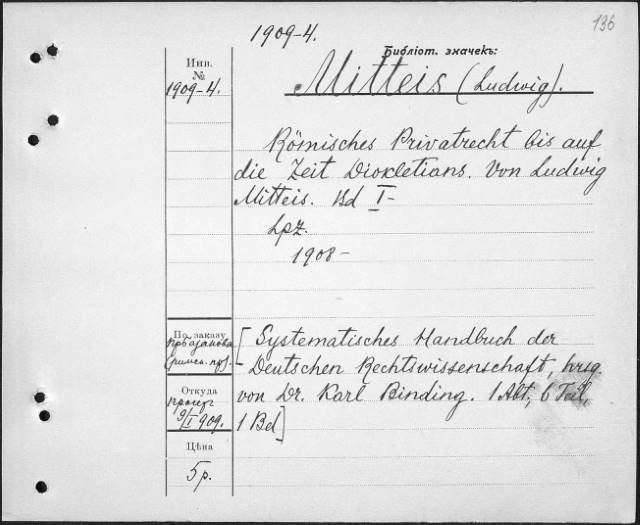 136
1909-4.
Библіот. значекъ:
Инв.
№
1909-4.
Mitteis (Ludwig).
Römisches Privatrecht bis auf
die Zeit Diokletians. Von Ludwig
Mitteis. Bd I-
Lpz.
1908-
По заказу
[Systematisches Handbuch der
Deutschen Rechtswissenschaft, hrsg.
von Dr. Karl Binding. 1 Abt, 6 Teil,
1 Bd]
Откуда
9/I 909.
Цѣна
5 р.